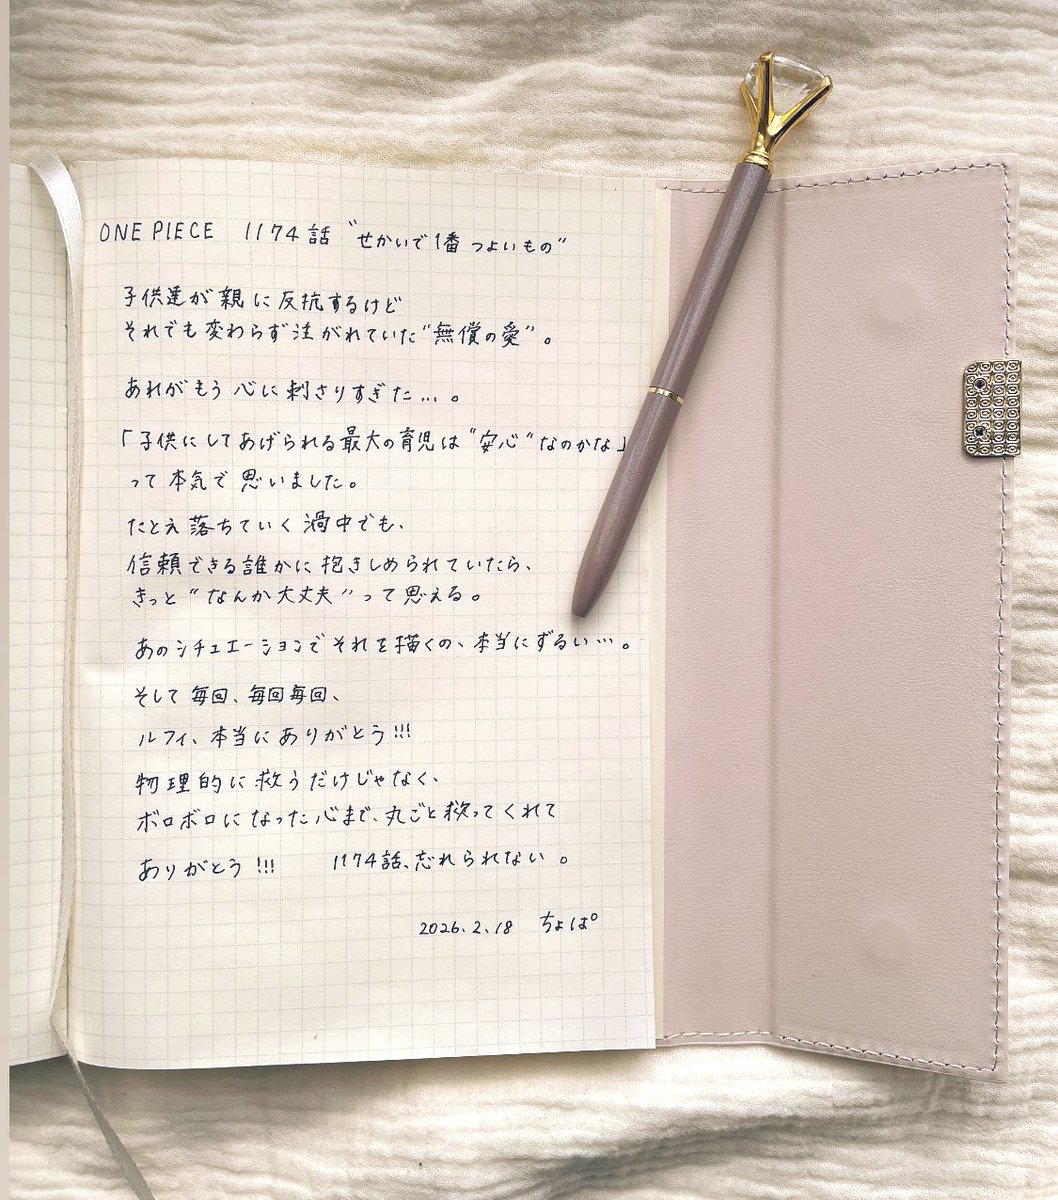 ONE PIECE 1174話 "せかいで1番つよいもの"
子供達が親に反抗するけど
それでも変わらず注がれていた"無償の愛"。
あれがもう心に刺さりすぎた…。
「子供にしてあげられる最大の育児は"安心"なのかな」
って本気で思いました。
たとえ落ちていく渦中でも、
信頼できる誰かに抱きしめられていたら、
きっと"なんか大丈夫"って思える。
あのシチュエーションでそれを描くの、本当にずるい…。
そして毎回、毎回毎回、
ルフィ、本当にありがとう!!!
物理的に救うだけじゃなく、
ボロボロになった心まで、丸ごと救ってくれて
ありがとう!!! 1174話、忘れられない。
2026.2.18 ちょぱ